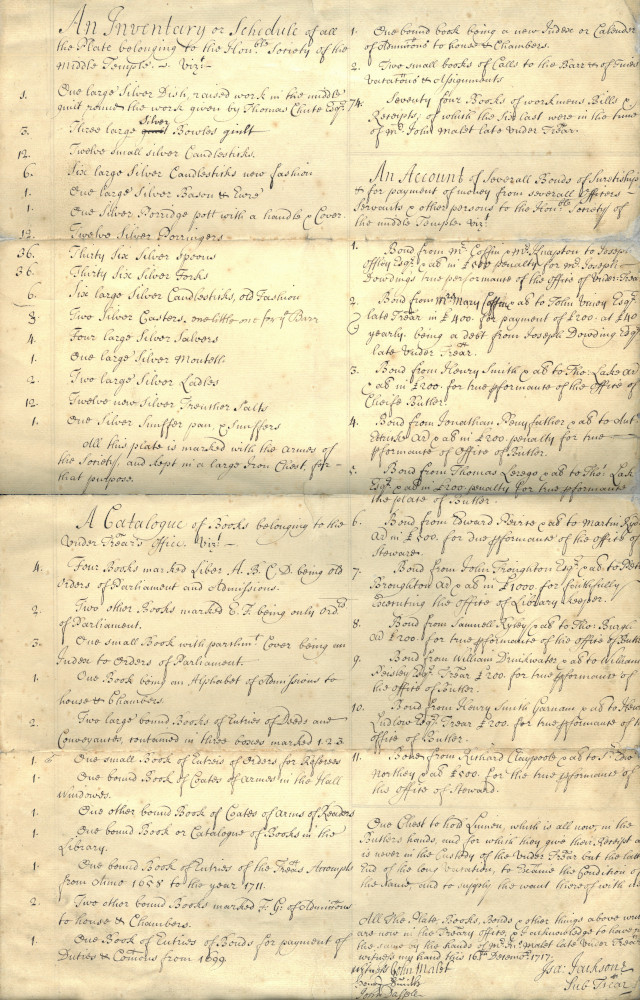 An Inventary or Schedule of all
the Plate belonging to the Hon:ble Society of the
Middle Temple. vizt.
1. One large Silver Dish, raised work in the middle
guilt round the work given by Thomas Chute Esqr.
3. Three large Silver Bowles guilt
12. Twelve small silver Candlesticks.
6. Six large Silver Candlesticks new fashion
1. One large Silver Bason & Ewre
1. One Silver Porridge pott with a handle & Cover.
12. Twelve Silver Porringers
36. Thirty Six Silver Spoons
36. Thirty Six Silver Forks
6. Six large Silver Candlesticks, old Fashion
3. Two Silver Casters, one little one for ye Barr
4. Four large Silver Salvers
1. One large Silver Monteth
2. Two large Silver Ladles
12. Twelve new Silver Trencher Salts
1. One Silver Snuffer pan & Snuffers
All this plate is marked with the Armes of
the Society, and kept in a large Iron Chest, for
that purpose.
A Catalogue of Books belonging to the
Under Treãrs Office. vizt.
4. Four Books marked Liber A. B. C. D. being old
Orders of Parliament and Admissions.
2. Two other Books marked E. F. being only Ordrs
of Parliament.
3. One small Book with parchmt Cover being an
Index to Orders of Parliament.
1. One Book being an Alphabet of Admissions to
house & Chambers.
2. Two large bound Books of Entries of Deeds and
Conveyances, contained in three boxes marked 1.2.3.
1. One small Book of Entries of Orders for Referees
1. One bound Book of Coates of Armes in the Hall
Windowes.
1. One other bound Book of Coates of Arms of Readers
1. One bound Book or Catalogue of Books in the
Library.
1. One bound Book of Entries of the Treãrs Accompts
from Anno 1658 to the year 1711.
2. Two other bound Books marked F: G: of Admittions
to house & Chambers.
1. One Book of Entries of Bonds for payment of
Duties & Comons from 1699
1. One bound book being a new Index or Calender
of Admittions to house & Chambers.
2. Two small books of Calls to the Barr & of Fines
Vacations & Assignments
74. Seventy four Books of workmens Bills &
Receipts, of which the Six last were in the time
of mr. John Malet late Under Treãr.
An Account of Severall Bonds of Suretiship
& for payment of money from severall Officers
Servants & other persons to the Honble Society of
the middle Temple vizt.
1. Bond from mr. Coffin & mr. Knapton to Joseph
Offley Esqr. & als in £500 penalty for mr. Joseph
Dowdings true performance of the office of Under-Treãr
2. Bond from Mrs Mary Coffin & als to John
late Treãr. in £400. for payment of £200. at £40
yearly. being a debt from Joseph Dowding Esqr
late Under Treãr.
3. Bond from Henry Smith & als to Tho: Lake Ad
& als in £200. for true pformance of the Office of
Cheife Butler.
4. Bond from Jonathan & als to Ant:
Ad & als in £200. penalty for true
pformance of Office of Butler.
5. Bond from Thomas & als to Tho: Lake
Esqr. & als in £200 penalty for true pformance
the place of Butler.
6. Bond from Edward Peirce & als to Martin
Ad in £500. for due pformance of the office of
Steward.
7. Bond from John Troughton Esqr. & als to
Broughton Ad & als in £1000 for faithfully
Executing the office of Library keeper.
8. Bond from Samuell & als to Tho: Burgh
Ad £200. for true pformance of the office of Butler
9. Bond from William Drinkwater & als to William
Esqr. Treãr £200. for true pformance of
the office of Butler.
10. Bond from Henry Smith Garnam & als to
Ludlow Esqr. Treãr £200. for true pformance of
office of Butler.
11. Bond from Richard Claypoole & als to Sr.
Northey & als £500. for the true pformance of
the office of Steward.
One Chest to hold Linnen, which is all now, in the
Butlers hands, and for which they give their Receipt
is never in the Custody of the Under Treãr but the latter
End of the long vacation, to Examine the Condition of
the Same, and to supply the want thereof with
All the Plate, Books, Bonds & other things above
are now in the Treãry office, & I acknowledge to have
the same by the hands of mr. Jn: Malet late Under Treãr
witness my hand this 16th Decembr. 1717.
Witness John Malet
Henry Smith
Jos: Jackson
Sub-Treãr